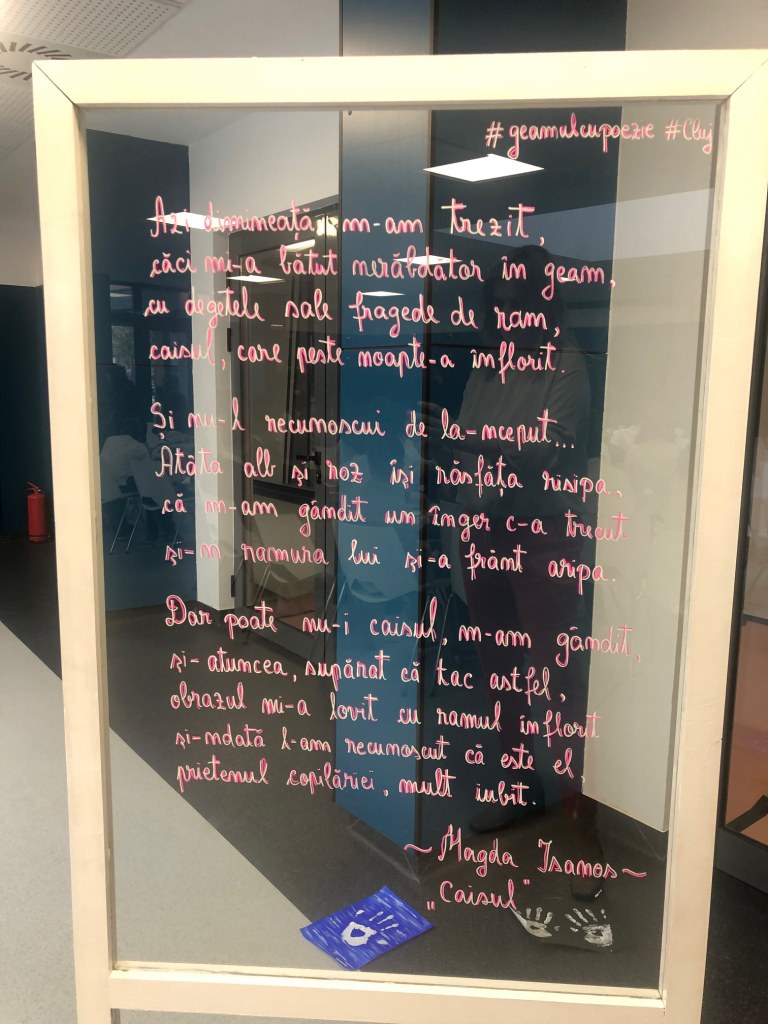 #geamulcupoezie #Cluj
Azi dimineață m-am trezit,
căci mi-a bătut nerăbdător în geam,
cu degetele sale fragede de ram,
caisul, care peste noapte-a înflorit.
Și nu-l recunoscui de la-nceput...
Atâta alb și roz își răsfăța risipa,
că m-am gândit un înger c-a trecut
și-n ramura lui și-a frânt aripa.
Dar poate nu-i caisul, m-am gândit,
și-atuncea, supărat că tac astfel,
obrazul mi-a lovit cu ramul înflorit
și-ndată l-am recunoscut că este el,
prietenul copilăriei, mult iubit.
~ Magda Isanos ~
„Caisul"